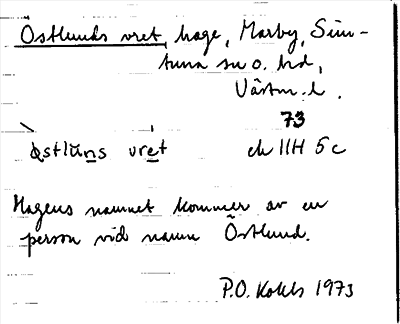 Östlunds vret, hage, Marby, Sim-
tuna sn o. hd,
Västm. l.
73
östlùns vrét ek 11H 5c
Hagens namnet kommer av en
person vid namn Östlund.
P.O. Kokls 1973